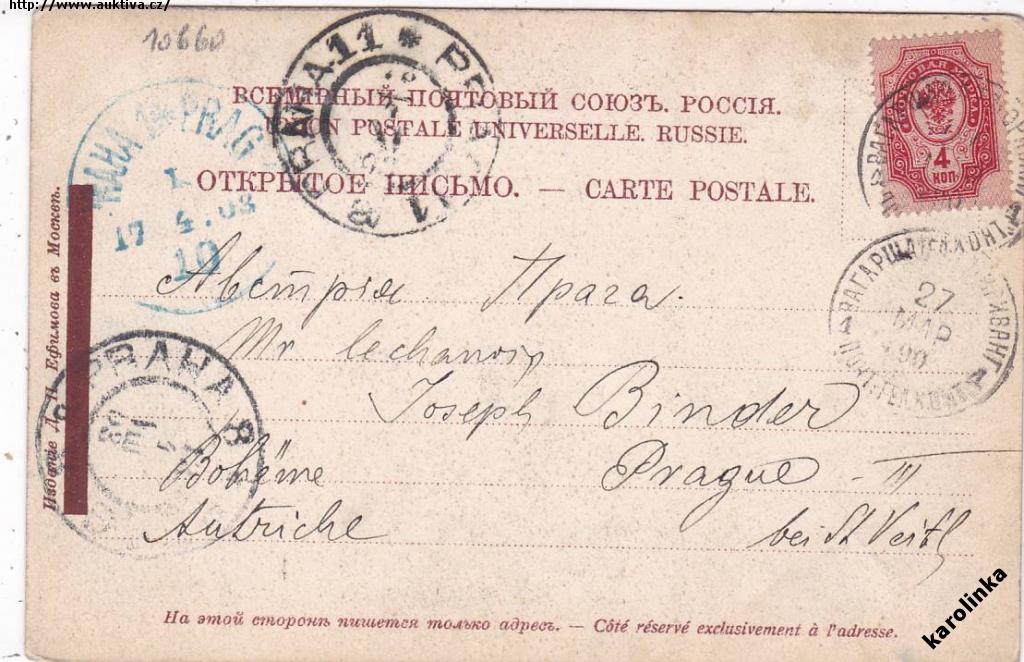 http://www.auktiva.cz/
10660
ВСЕМІРНЫЙ ПОЧТОВЫЙ СОЮЗЪ. РОССІЯ.
UNION POSTALE UNIVERSELLE. RUSSIE.
ОТКРЫТОЕ ПИСЬМО. — CARTE POSTALE.
4
КОП.
PRAHA 11 * PRAG 11
PRAHA 1 * PRAG
17 4. 03
10
ВАГАРШАПАТ
27
МАР
PRAHA 8
Издание Д. П. Ефимова въ Москвѣ.
Австрія. Прага.
Mr lechanoin
Joseph Binder
Bohême Prague III
Autriche bei St Veith
На этой сторонѣ пишется только адресъ. — Côté réservé exclusivement à l'adresse.
karolinka